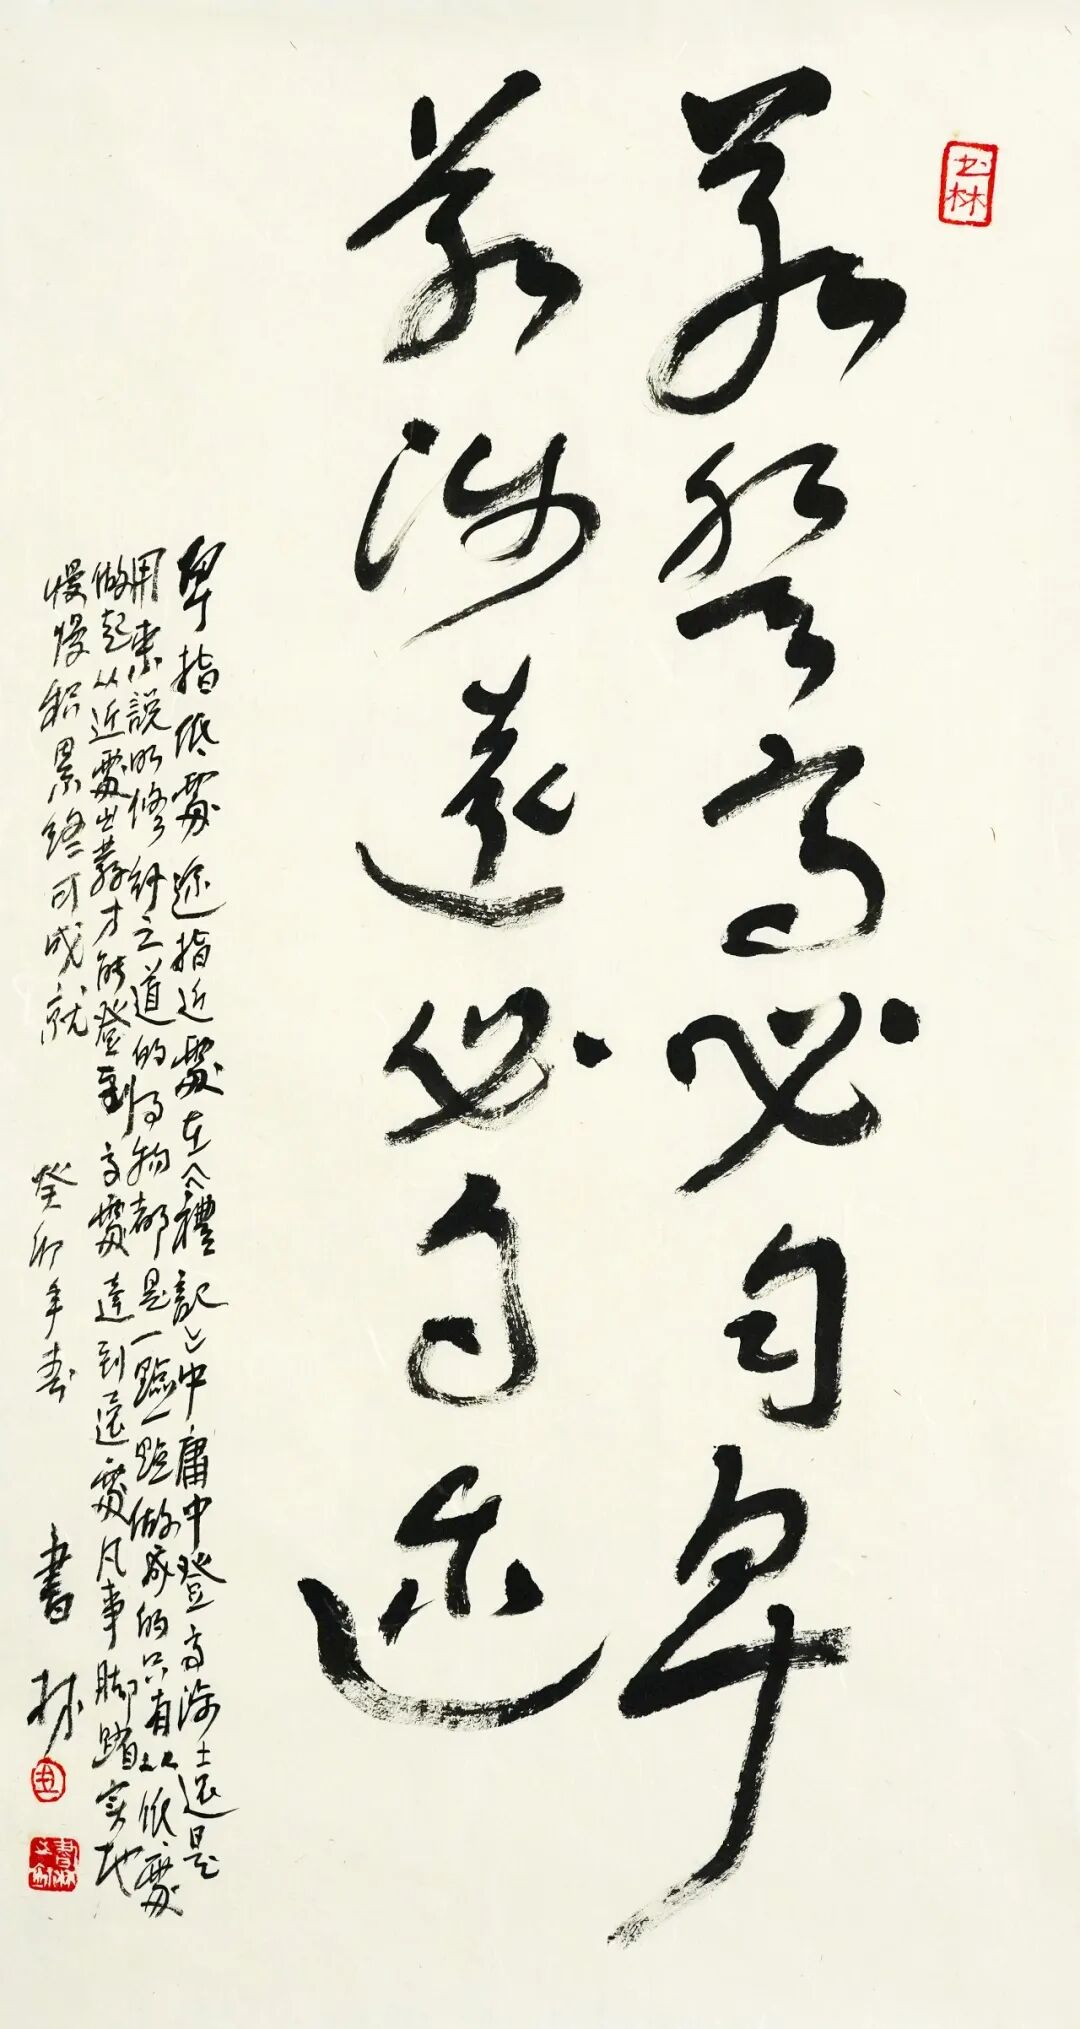 书林
若登高必自卑
若涉遠必自迩
卑指低處迩指近處在《禮記》中庸中登高涉遠是
用来説明修行之道的物都是一點一點做成的只有从低處
做起从近處出發才能登到高處達到遠處凡事脚踏实地
慢慢积累终可成就 癸卯年春 書林